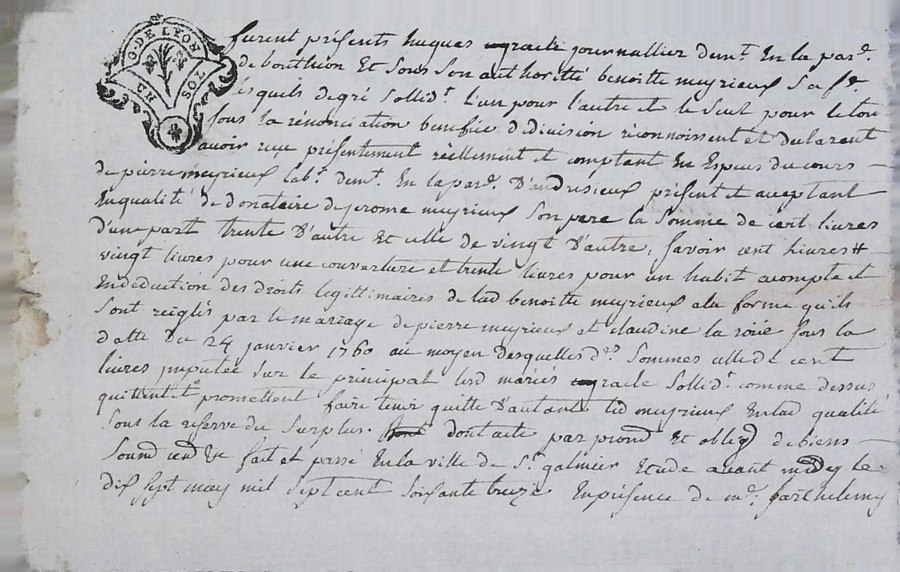 G. DE LYON
UN SOL
furent présents hugues graile journallier demt. En la par.
de bouthéon Et sous son authoritté benoitte meyrieux sa f.
lesquils de gré sollidt. L'un pour l'autre et le seul pour le tou
sous la rénonciation bénéfice de division réconnoissent et declarent
avoir reçu présentement réellement et comptant En Especes du cours
de pierre meyrieux labr. demt. En la par. D'andresieux présent et acceptant
En qualité de donataire de jerome meyrieux Son pere la Somme de cent livres
d'une part trente D'autre Et celle de vingt D'autre, savoir cent livres #
vingt livres pour une couverture et trente livres pour un habit acompte et
En déduction des Droits legittimaires de lad benoitte meyrieux a la forme qu'ils
Sont reiglés par le mariage de pierre meyrieux et claudine la roüe sous la
datte Du 24 janvier 1760 au moyen desquelles ds. Sommes celle de cent
livres imputée Sur le principal lesd mariés graile Sollidt. comme dessus
quittent et promettent faire tenir quitte D'autant led meyrieux En lad qualité
Sous la reserve du Surplus. dont acte par promd Et obligd de biens
Soumd rend &c fait et passé En la ville de St. galmier Etude avant midy le
dix sept may mil sept cent soixante treize En présence de me. barthelemy